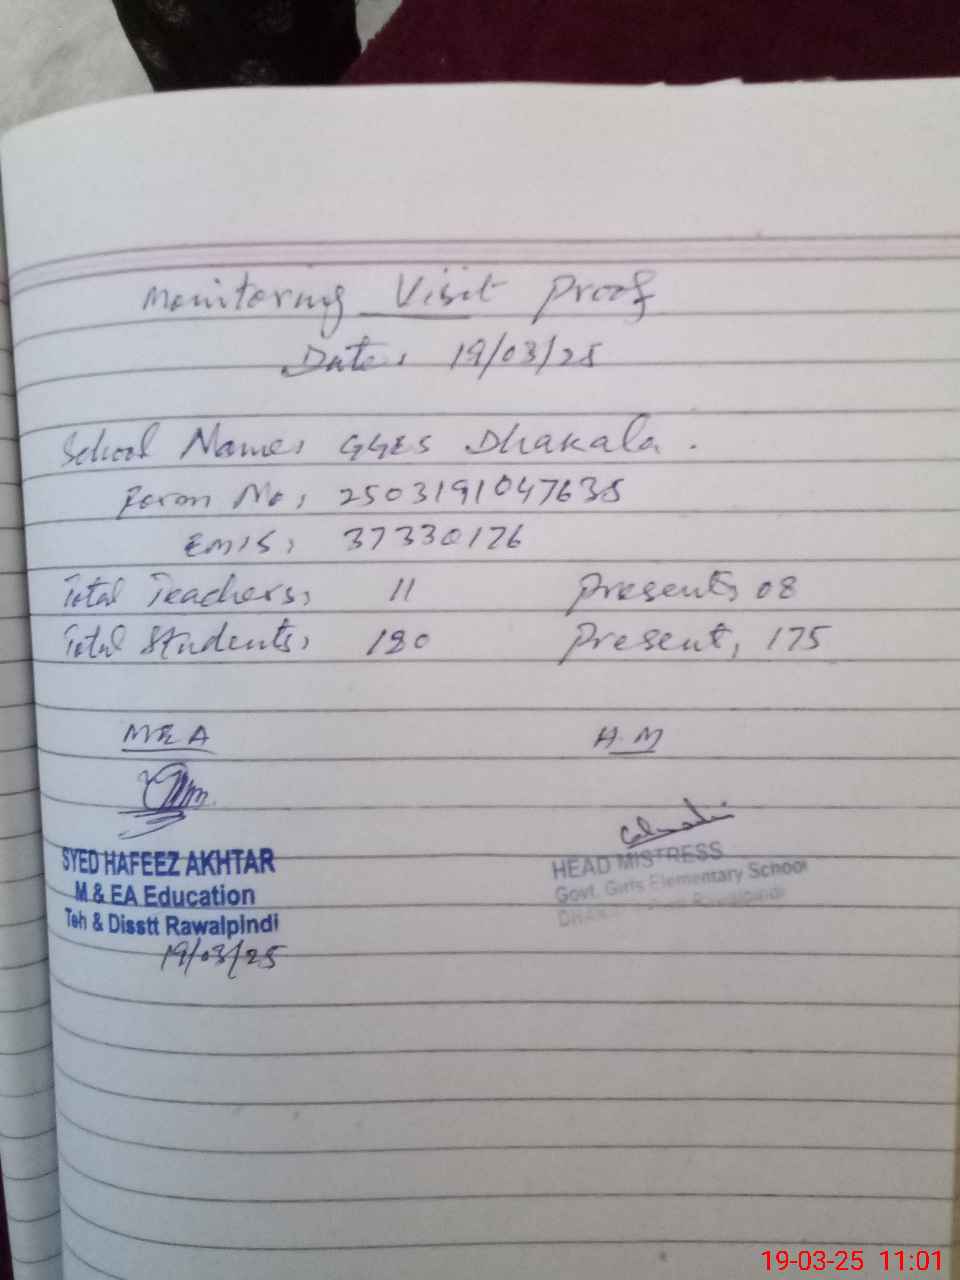 Monitoring Visit Proof
Date, 19/03/25
School Name, GGES Dhakala.
Form No, 2503191047638
EMIS, 37330126
Total Teachers, 11 Present, 08
Total Students, 180 Present, 175
MEA H.M
SYED HAFEEZ AKHTAR
M & EA Education
Teh & Disstt Rawalpindi
19/03/25
HEAD MISTRESS
Govt. Girls Elementary School
Rawalpindi
19-03-25 11:01